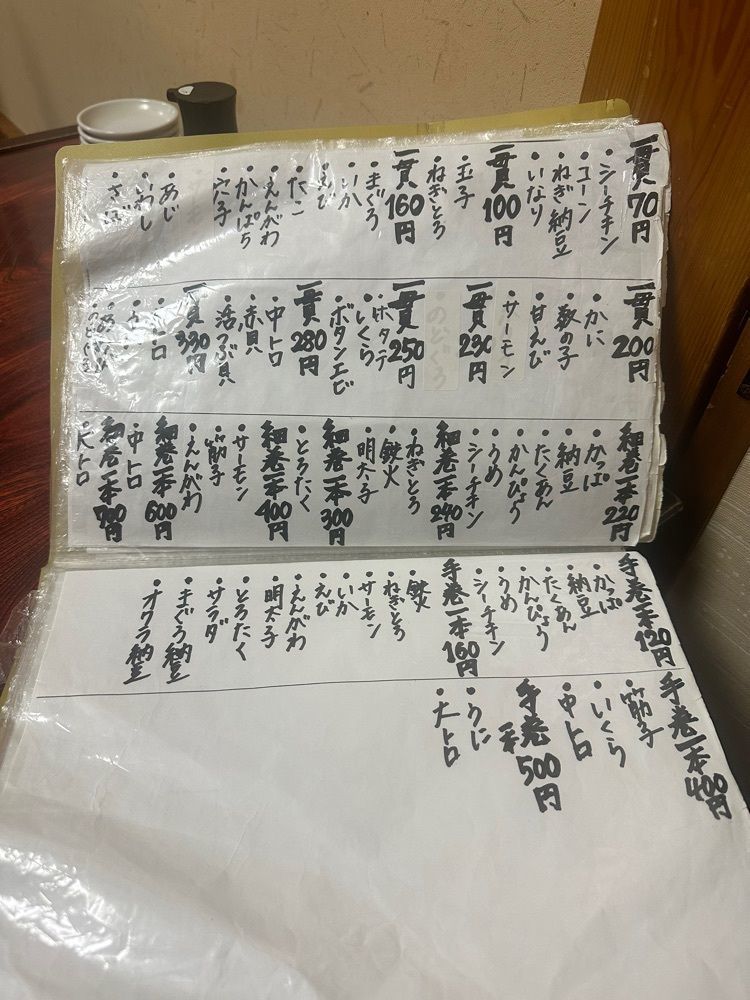 一貫70円
・シーチキン
・コーン
・ねぎ納豆
・いなり
一貫100円
・玉子
・ねぎとろ
一貫160円
・まぐろ
・いか
・えび
・たこ
・えんがわ
・かんぱち
・穴子
・あじ
・いわし
・さば
一貫200円
・かに
・数の子
・甘えび
・サーモン
一貫230円
・のどぐろ
一貫250円
・ホタテ
・いくら
・ボタンエビ
一貫280円
・中トロ
・赤貝
・活つぶ貝
一貫330円
細巻一本220円
・かっぱ
・納豆
・たくあん
・かんぴょう
・うめ
・シーチキン
細巻一本240円
・ねぎとろ
・鉄火
・明太子
細巻一本300円
・とろたく
細巻一本400円
・サーモン
・筋子
・えんがわ
細巻一本600円
・中トロ
細巻一本700円
・大トロ
手巻一本120円
・かっぱ
・納豆
・たくあん
・かんぴょう
・うめ
・シーチキン
手巻一本160円
・鉄火
・ねぎとろ
・サーモン
・いか
・えび
・えんがわ
・明太子
・とろたく
・サラダ
・まぐろ納豆
・オクラ納豆
手巻一本400円
・筋子
・いくら
・中トロ
手巻一本500円
・うに
・大トロ